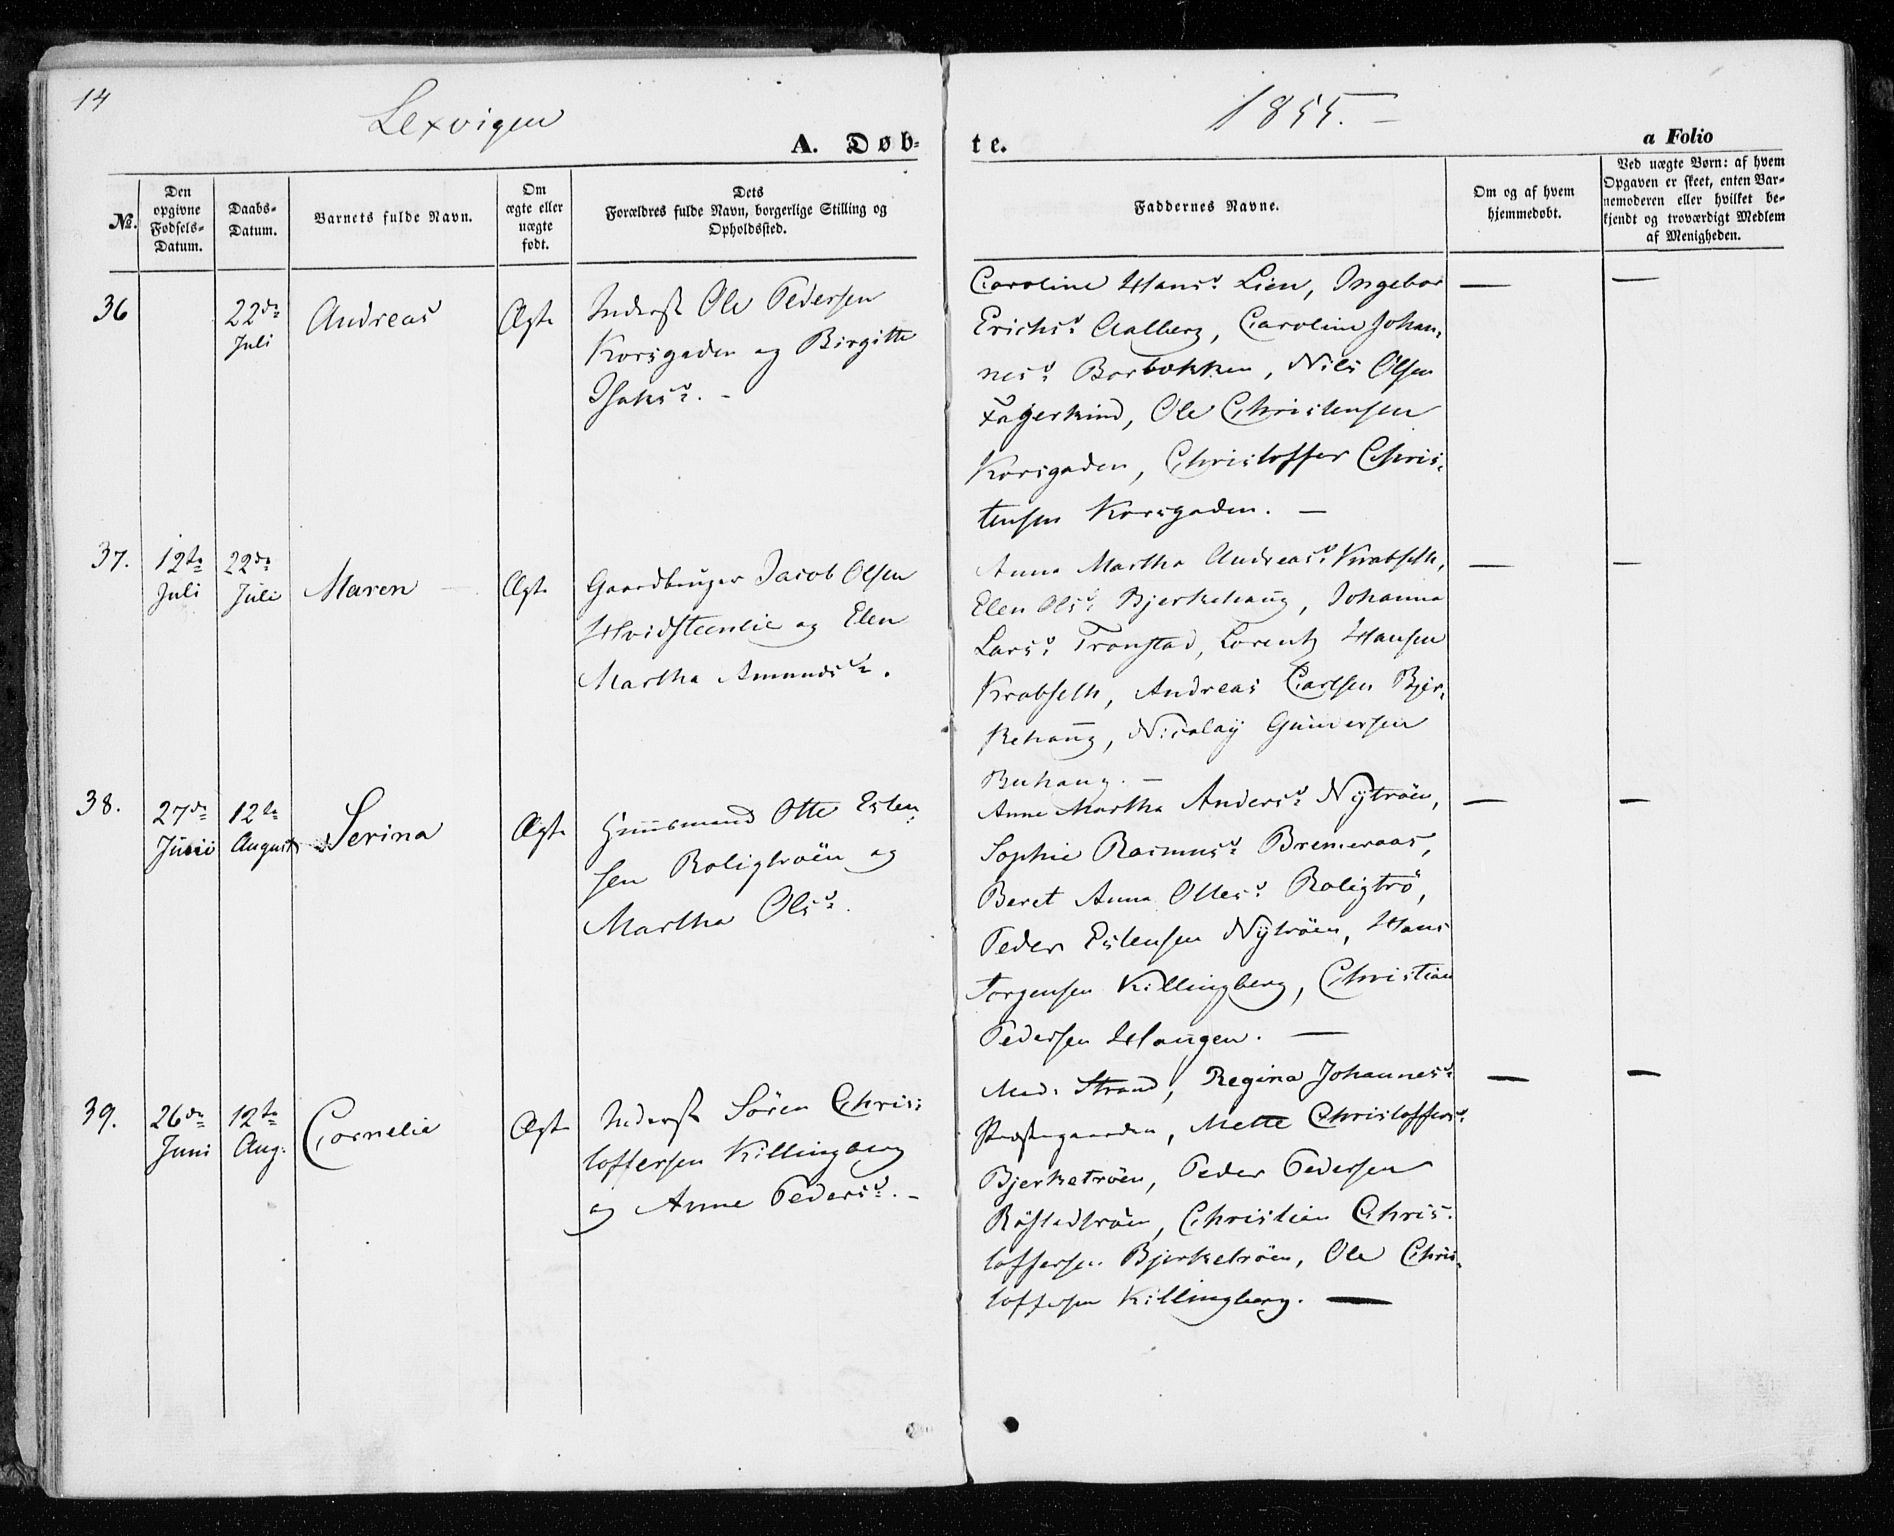 14
Lexvigen
1855. —
A. Døb-
te.
a Folio
No.
Den
opgivne
Fødsels-
Datum.
Daabs-
Datum.
Barnets fulde Navn.
Om
ægte eller
uægte
født.
Dets
Forældres fulde Navn, borgerlige Stilling og
Opholdssted.
Faddernes Navne.
Om og af hvem
hjemmedøbt.
Ved uægte Børn: af hvem
Opgaven er skeet, enten Bar-
nemoderen eller hvilket be-
kjendt og troværdigt Medlem
af Menigheden.
36
22de
Juli
Andreas
Ægte
Inderst Ole Pedersen
Korsgaden og Birgitte
Isaksd. -
Caroline Hansd. Lien, Ingebor
Erichsd. Aalberg, Caroline Johan-
nesd. Borbakken, Nils Olsen
Fagerkind, Ole Christensen
Korsgaden, Christoffer Chris-
tensen Korsgaden. —
—
—
37.
12te
Juli
22de
Juli
Maren
Ægte
Gaardbruger Jacob Olsen
Hvidsteenlie og Elen
Martha Amundsd.
Anna Martha Andreasd. Krabseth,
Elen Olsd. Bjerkehaug, Johanna
Larsd. Tronstad, Lorentz Hansen
Krabseth, Andreas Carlsen Bjer-
kehaug, Nicolay Gundersen
Buhaug. —
—
—
38.
27de
Junii
12te
August
Serina
Ægte
Huusmand Otte Esten-
sen Roligtrøen og
Martha Olsd.
Anne Martha Andersd. Nytrøen,
Sophie Rasmusd. Bremeraas,
Beret Anna Ottesd. Roligtrø,
Peder Estensen Nytrøen, Hans
Jørgensen Killingberg, Christian
Pedersen Haugen. —
—
—
39.
26de
Juni
12te
Aug.
Cornelie
Ægte
Inderst Søren Chris-
toffersen Killingberg
og Anne Pedersd. -
Mad. Strand, Regina Johannesd.
Præstegaarden, Mette Christoffersd.
Bjerketrøen, Peder Pedersen
Røstadtrøen, Christian Chris-
toffersen Bjerketrøen, Ole Chris-
toffersen Killingberg. —
—
—